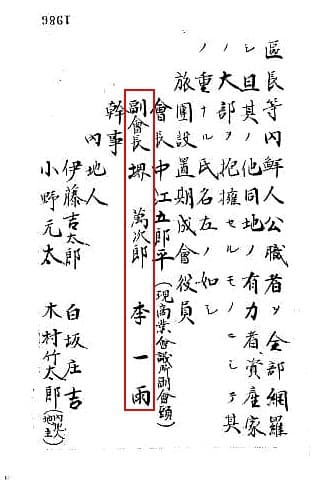 1986
區長等内鮮人公職者ヲ全部網羅
シ且其ノ他同地ノ有力者資産家
ノ大部ヲ抱擁セルモノニシテ其
ノ重ナル氏名左ノ如シ
旅團設置期成會役員
會長 中江五郎平 (現商業會議所副會頭)
副會長 堺 萬次郎 李一雨
幹事
内地人
伊藤吉太郎 白坂庄吉
小野元太 木村竹太郎